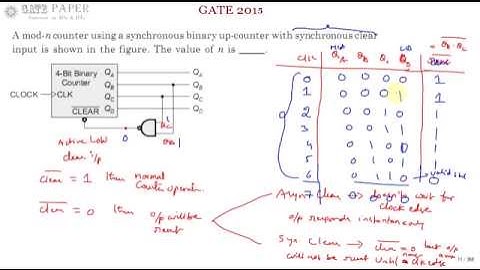 GATE PAPER
GATE 2015
A mod-n counter using a synchronous binary up-counter with synchronous clear
input is shown in the figure. The value of n is ____.
4-Bit Binary
Counter
CLOCK
CLK
CLEAR
QA
QB
QC
QD
QA
QB
QC
QD
QC
QB
1
0
Active Low
clear i/p
Clear = 1 then normal
Counter operation
Clear = 0 then o/p will be
reset
CLK
MSB
LSB
QA QB QC QD
QB·QC
Clear
0 0 0 0 0 1
1 0 0 0 1 1
2 0 0 1 0
3 0 0 1 1
4 0 1 0 0
5 0 1 0 1
6 0 1 1 0
7 0 0 0 0
Asyn clear → doesn't wait for
clock edge
o/p responds instantaneously
Syn Clear → clear = 0 but o/p
will not be reset until